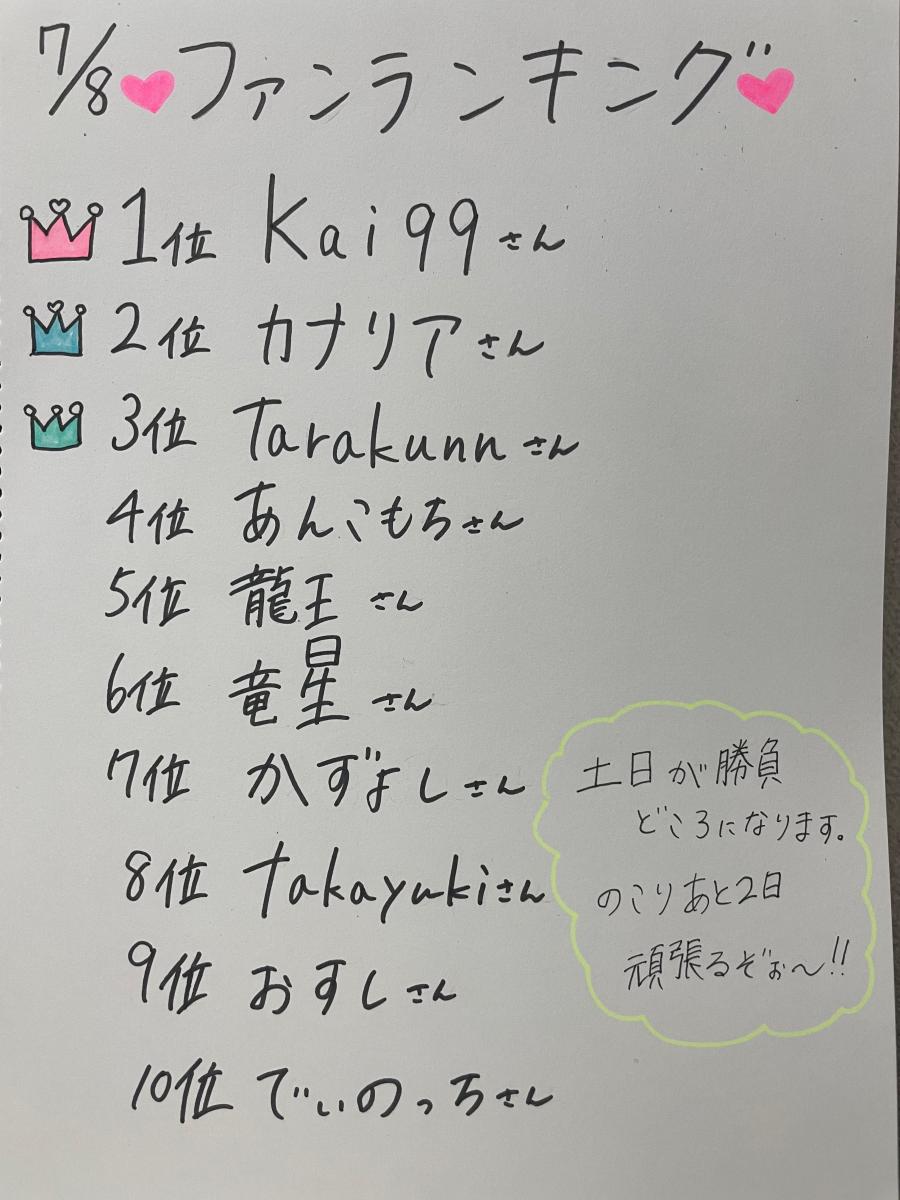 7/8♥ファンランキング♥
1位 Kai99さん
2位 カナリアさん
3位 Tarakunnさん
4位 あんこもちさん
5位 龍王さん
6位 竜星さん
7位 かずよしさん
8位 takayukiさん
9位 おすしさん
10位 でぃのっちさん
土日が勝負
どころになります。
のこりあと2日
頑張るぞぉ〜!!